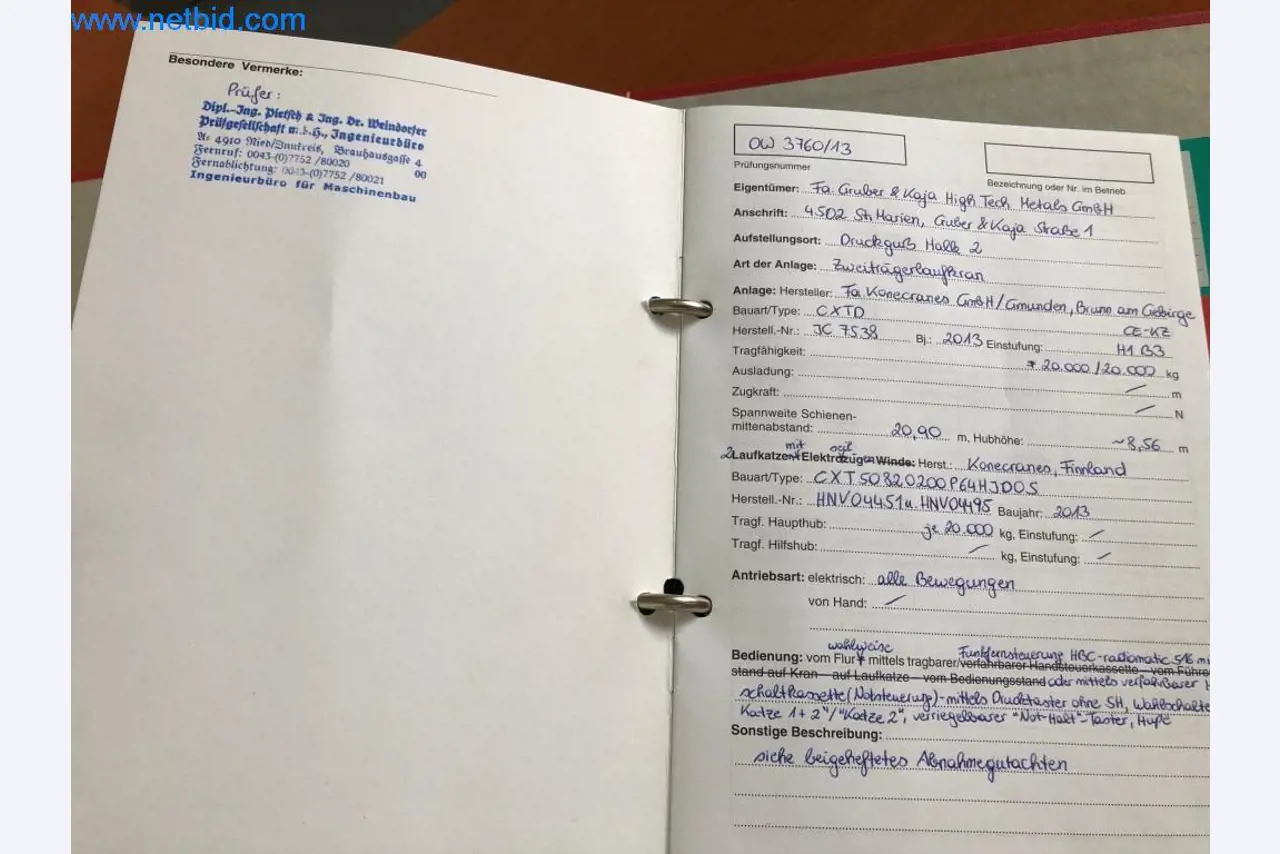 www.netbid.com
Besondere Vermerke:
Prüfer:
Dipl.-Ing. Pietsch & Ing. Dr. Weindorfer
Prüfgesellschaft m.b.H., Ingenieurbüro
A- 4910 Ried/Innkreis, Brauhausgasse 4
Fernruf: 0043-(0)7752 /80020 00
Fernablichtung: 0043-(0)7752 /80021
Ingenieurbüro für Maschinenbau
OW 3760/13
Prüfungsnummer
Bezeichnung oder Nr. im Betrieb
Eigentümer: Fa. Gruber & Kaja High Tech Metals GmbH
Anschrift: 4502 St. Marien, Gruber & Kaja Straße 1
Aufstellungsort: Druckguß Halle 2
Art der Anlage: Zweiträgerlaufkran
Anlage: Hersteller: Fa. Konecranes GmbH/Gmunden, Brunn am Gebirge
Bauart/Type: CXTD CE-KZ
Herstell.-Nr.: JC 7538 Bj.: 2013 Einstufung: H1 B3
Tragfähigkeit: * 20.000 / 20.000 kg
Ausladung: / m
Zugkraft: / N
Spannweite Schienen-
mittenabstand: 20,90 m, Hubhöhe: ~8,56 m
2 Laufkatzen mit Elektrozügen Winde: Herst.: Konecranes, Finnland
Bauart/Type: CXT50820200P64HJDOS
Herstell.-Nr.: HNV04451 u. HNV04495 Baujahr: 2013
Tragf. Haupthub: je 20.000 kg, Einstufung: /
Tragf. Hilfshub: / kg, Einstufung: /
Antriebsart: elektrisch: alle Bewegungen
von Hand: /
wahlweise Funkfernsteuerung HBC-radiomatic 516
Bedienung: vom Flur mittels tragbarer/verfahrbarer Handsteuerkassette – vom Führer
stand auf Kran – auf Laufkatze – vom Bedienungsstand oder mittels verfahrbarer
schaltkassette (Notsteuerung)-mittels Drucktaster ohne SH, Wahlschalte
Katze 1+2"/"Katze 2", verriegelbarer "Not-Halt"-Taster, Hupe
Sonstige Beschreibung:
siehe beigeheftetes Abnahmegutachten